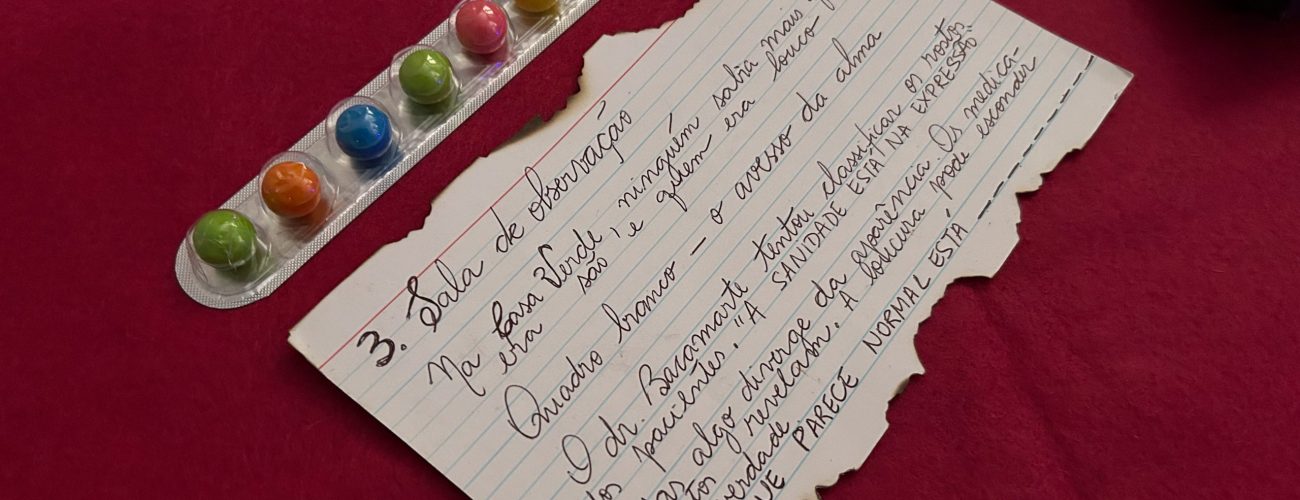 3. Sala de observação
Na Casa Verde ninguém sabia mais
era são, e quem era louco
Quadro branco — o avesso da alma
O dr. Bacamarte tentou classificar os rostos
dos pacientes. "A SANIDADE ESTÁ NA EXPRESSÃO"
algo diverge da aparência. Os medica-
tos revelam. A loucura pode esconder
verdade
PARECE NORMAL ESTÁ